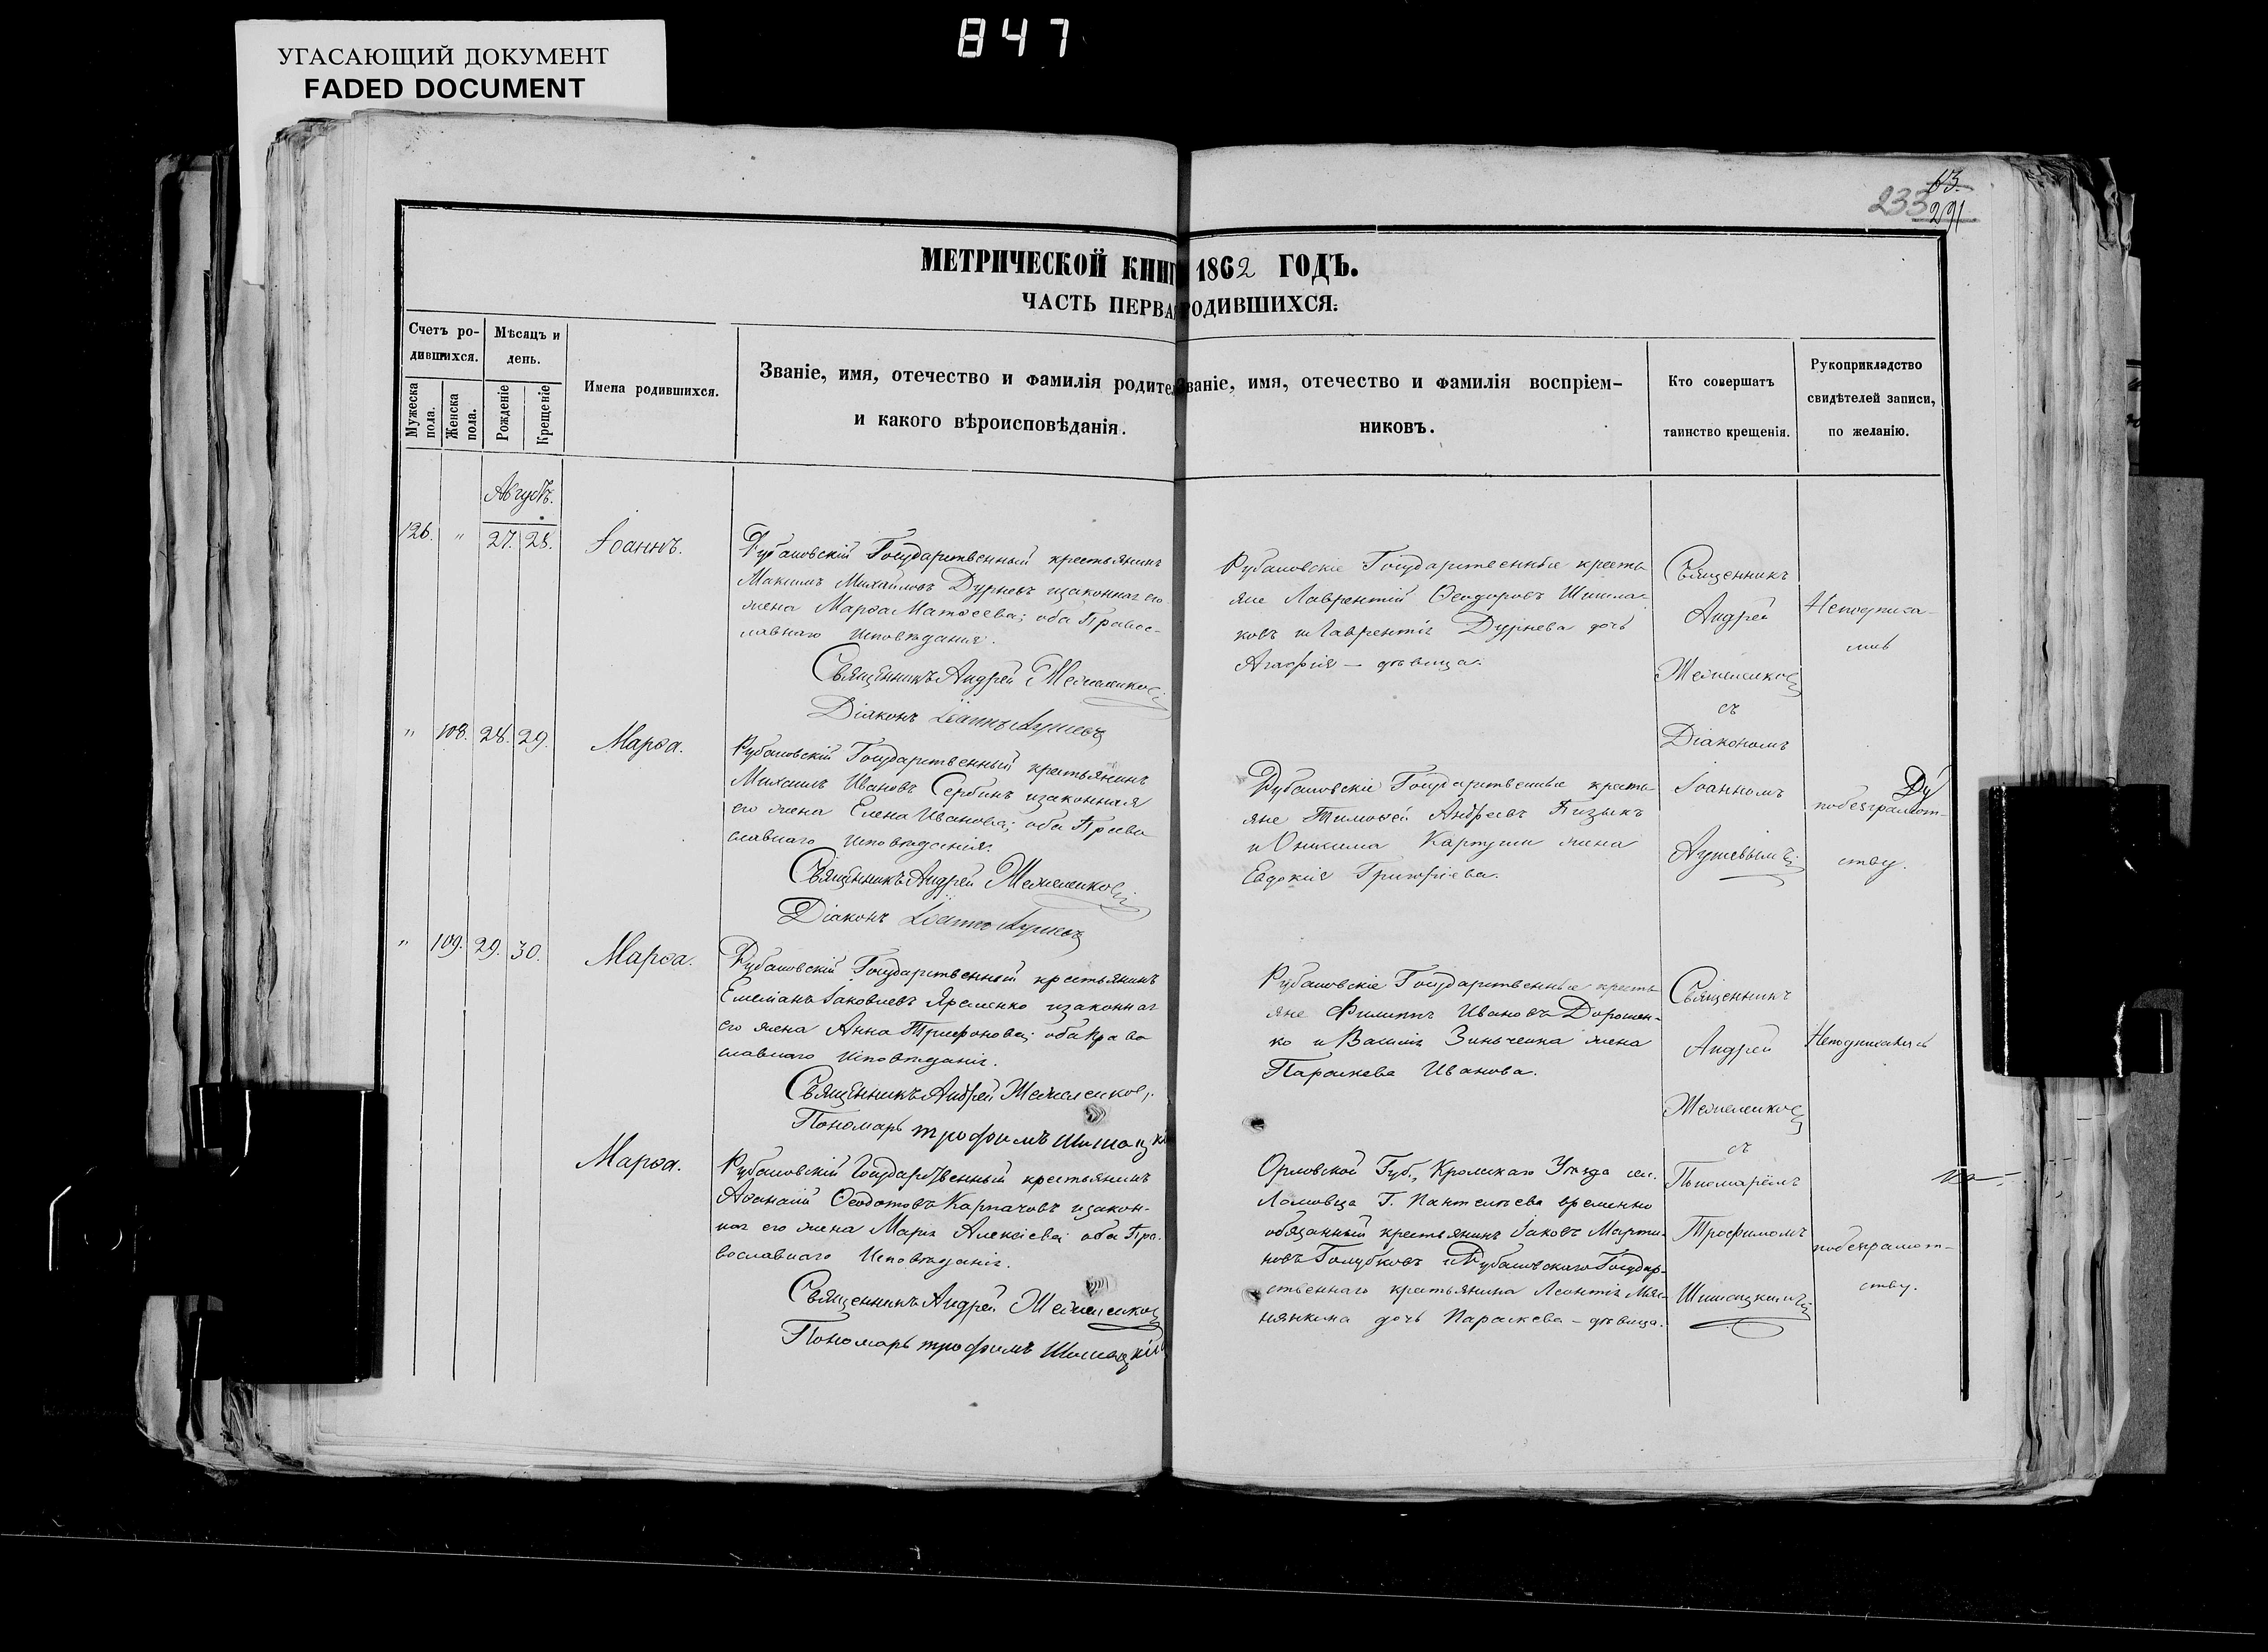 847
УГАСАЮЩИЙ ДОКУМЕНТ
FADED DOCUMENT
233
291
МЕТРИЧЕСКОЙ КНИГ 1862 ГОДЪ.
ЧАСТЬ ПЕРВА РОДИВШИХСЯ:
Счетъ ро-
дившихся.
Мужеска пола.
Женска пола.
Мѣсяцъ и
день.
Рожденіе
Крещеніе
Имена родившихся.
Званіе, имя, отчество и фамилія родител
и какого вѣроисповѣданія.
званіе, имя, отечество и фамилія воспріем-
никовъ.
Кто совершатъ
таинство крещенія.
Рукоприкладство
свидѣтелей записи,
по желанію.
Августъ.
126. " 27. 28. Іоаннъ.
Рубановскій Государственный крестьянинъ
Максимъ Михайловъ Дурневъ изаконная его
жена Марѳа Матѳеева; оба Правос-
лавнаго Исповѣданія.
Священникъ Андрей
Діаконъ Іоаннъ
Рубановскіе Государственные кресть
яне Лаврентій Ѳеодоровъ
ковъ и Лаврентія Дурнева дочь
Агафія — дѣвица.
Священникъ
Андрей
съ
Діакономъ
Іоанномъ
Неподписа-
лись
" 108. 28. 29. Марѳа.
Рубановскій Государственный крестьянинъ
Михаилъ Ивановъ Сербинъ изаконная
его жена Елена Иванова; оба Право
славнаго Исповѣданія.
Священникъ Андрей
Діаконъ Іоаннъ
Рубановскіе Государственные кресть
яне Тимоѳей Андреевъ
и Онисима жена
Евдокія Григоріева.
побезграмот-
ству.
" 109. 29. 30. Марѳа.
Рубановскій Государственный крестьянинъ
Емеліанъ Іаковлевъ Яременко изаконная
его жена Анна Трифонова; оба Право
славнаго Исповѣданія.
Священникъ Андрей
Пономарь трофимъ
Рубановскіе Государственные кресть
яне Филиппъ Ивановъ Дорошен-
ко и Василія Зинченка жена
Параскева Иванова.
Священникъ
Андрей
съ
Пономарёмъ
Трофимомъ
Неподписались
Марѳа.
Рубановскій Государственный крестьянинъ
Аѳанасій Ѳеодотовъ Карпачовъ изакон-
ная его жена Марія Алексіева; оба Пра-
вославнаго Исповѣданія.
Священникъ Андрей
Пономарь трофимъ
Орловской Губ., Кромскаго Уѣзда сел.
Ломовца Г. Пантелѣева временно
обязанный крестьянинъ Іаковъ Марти-
новъ Голубковъ и Рубановскаго Государ-
ственнаго крестьянина Леонтія
дочь Параскева — дѣвица.
побезграмот-
ству.